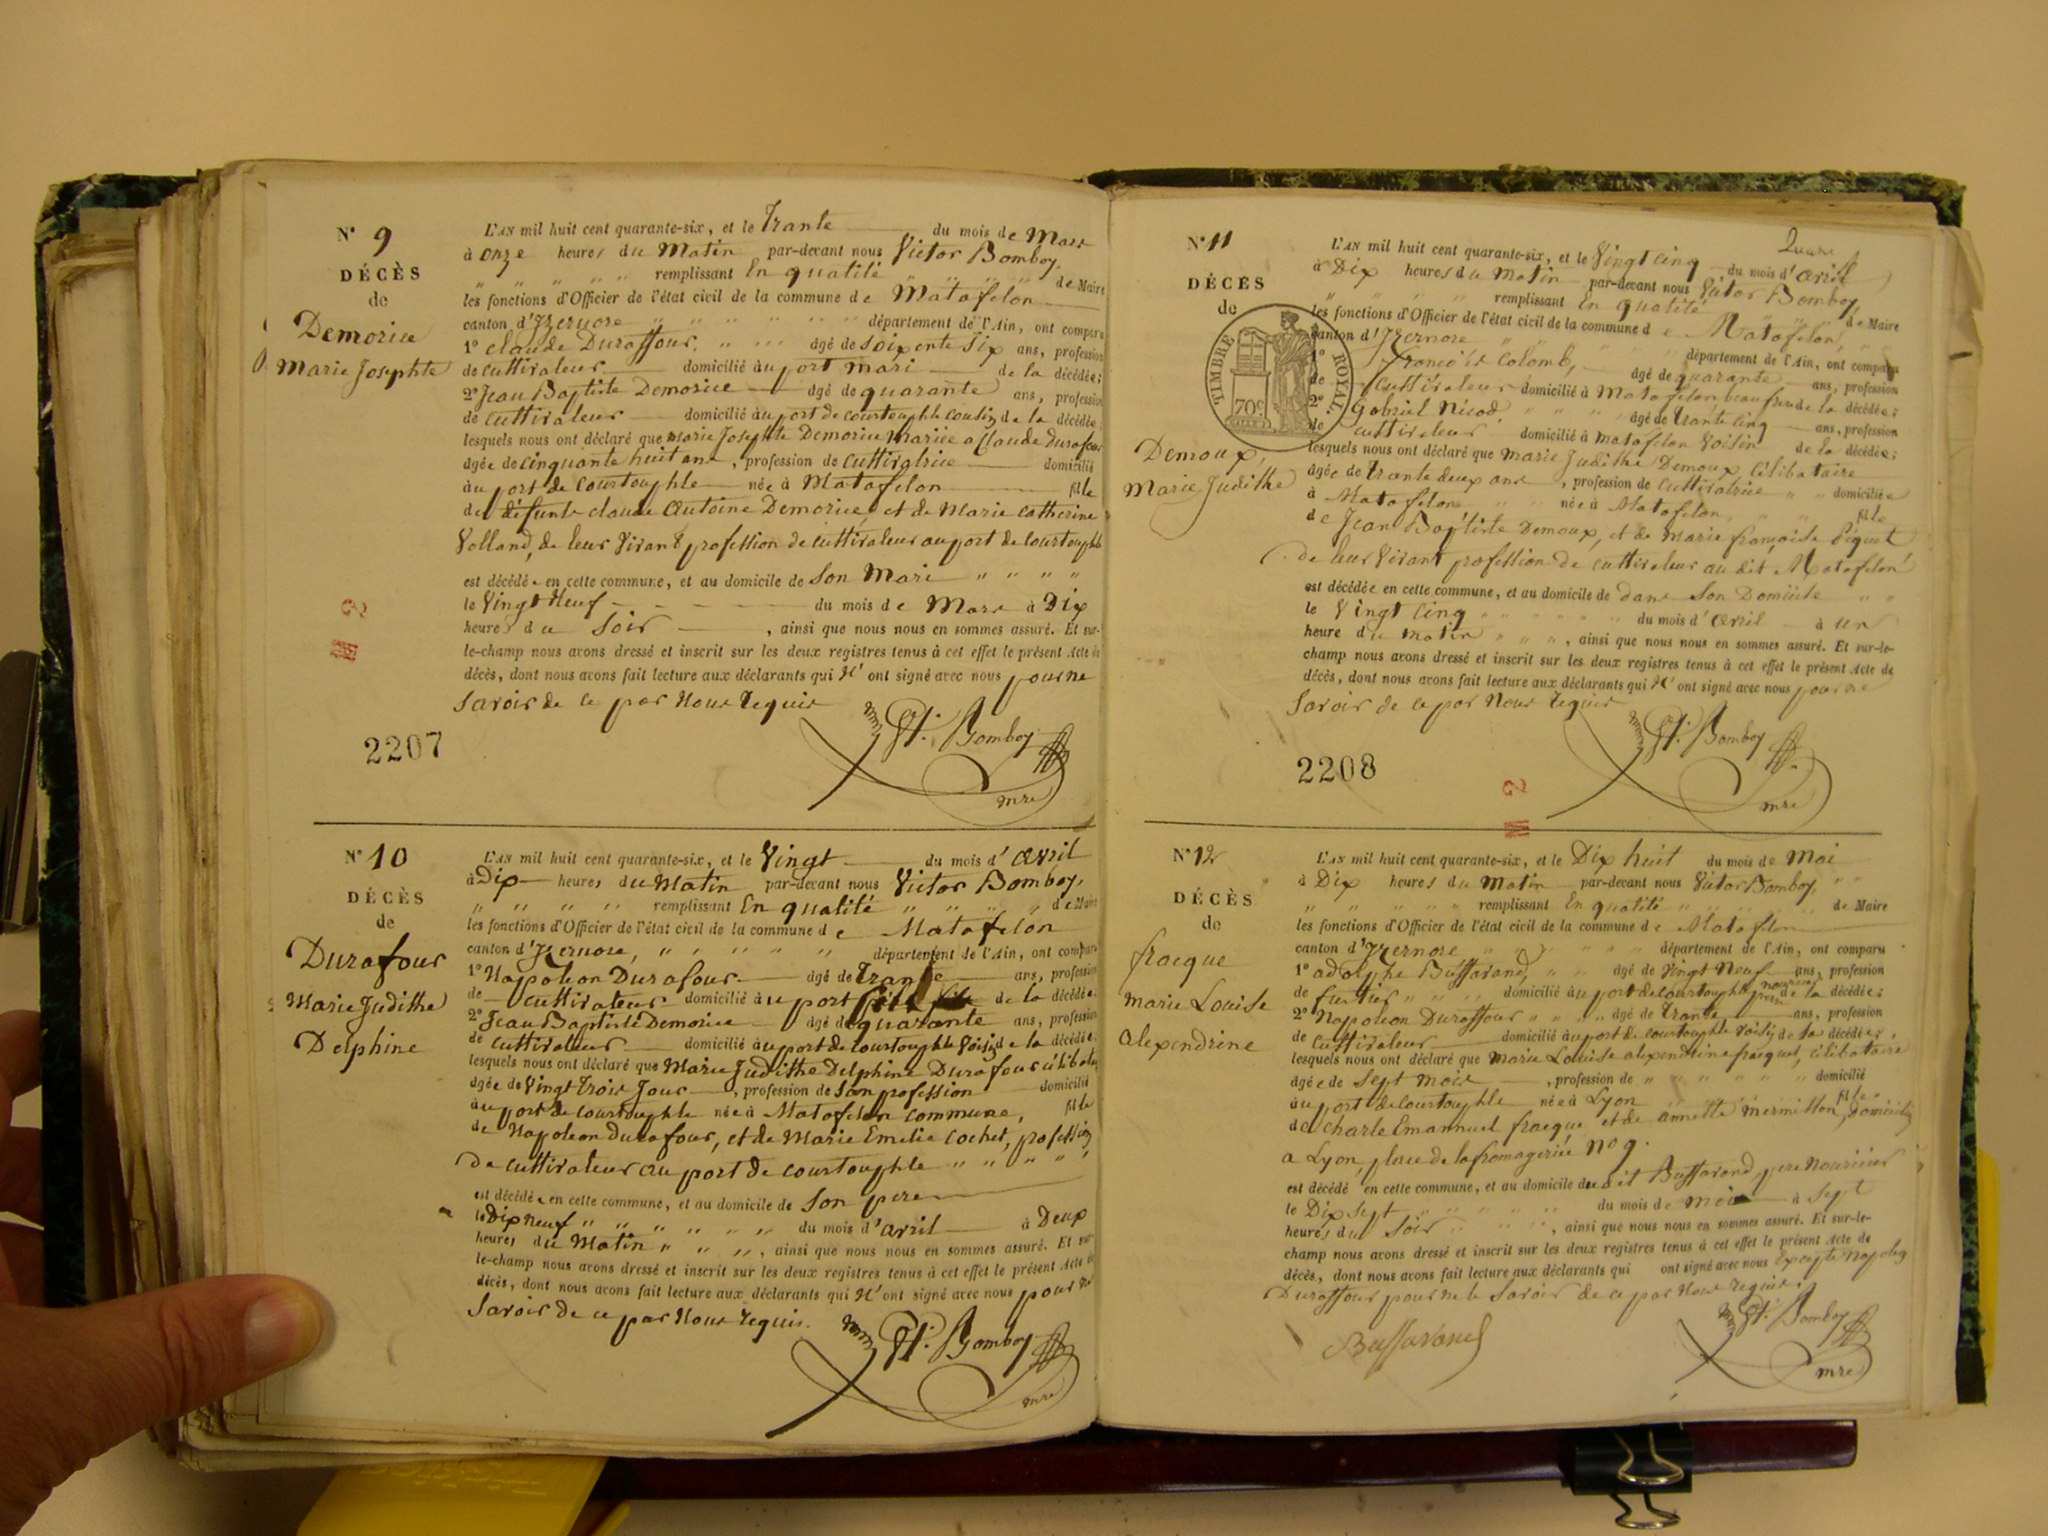 N° 9
DÉCÈS
de
Demorice
Marie Josephte
L'AN mil huit cent quarante-six, et le Trante du mois de Mars
à onze heures du Matin par-devant nous Victor Bomboy,
" " " " remplissant En qualité " " " " de Maire
les fonctions d'Officier de l'état civil de la commune de Matafelon
canton d'Izernore " " " " " " département de l'Ain, ont comparu
1° claude Duraffour, " " " âgé de Soixente Six ans, profession
de cultivateur domicilié au port mari de la décédée;
2° Jean Baptiste Demorice âgé de quarante ans, profession
de cultivateur domicilié au port de courtouphle cousin de la décédée;
lesquels nous ont déclaré que marie Josephte Demorice mariée a Claude Durafour
âgée de cinquante huit ans, profession de cultivatrice domicilié
au port de Courtouphle née à Matafelon fille
de défunts claude Antoine Demorice, et de Marie Catherine
Volland, de leur vivant profession de cultivateur au port de Courtouphle
est décédée en cette commune, et au domicile de Son Mari " " " "
le Vingt Neuf du mois de Mars à Dix
heures du Soir, ainsi que nous nous en sommes assuré. Et sur-
le-champ nous avons dressé et inscrit sur les deux registres tenus à cet effet le présent Acte de
décès, dont nous avons fait lecture aux déclarants qui N' ont signé avec nous pour ne
Savoir de ce par Nous requis
Vt. Bomboy
mre
2207
M 2
N° 10
DÉCÈS
de
Durafour
Marie Judithe
Delphine
L'AN mil huit cent quarante-six, et le Vingt du mois d' Avril
à Dix heures du Matin par-devant nous Victor Bomboy,
" " " " remplissant En qualité " " " " de Maire
les fonctions d'Officier de l'état civil de la commune de Matafelon
canton d'Izernore, " " " " " " département de l'Ain, ont comparu
1° Napoléon Durafour âgé de trante ans, profession
de cultivateur domicilié au port de la décédée;
2° Jean Baptiste Demorice âgé de quarante ans, profession
de cultivateur domicilié au port de courtouphle Voisin de la décédée;
lesquels nous ont déclaré que Marie Judithe Delphine Durafour célibataire
âgée de Vingt Trois Jour, profession de San profession domicilié
au port de courtouphle née à Matafelon commune, fille
de Napoleon Durafour, et de Marie Emelie Cochet, profession
de cultivateur au port de courtouphle " " " " "
est décédée en cette commune, et au domicile de Son pere
le Dix neuf " " " " " " du mois d'avril à Deux
heures du Matin " " ", ainsi que nous nous en sommes assuré. Et sur-
le-champ nous avons dressé et inscrit sur les deux registres tenus à cet effet le présent Acte de
décès, dont nous avons fait lecture aux déclarants qui N' ont signé avec nous pour ne
Savoir de ce par Nous requis.
Vt. Bomboy
mre
N° 11
DÉCÈS
de
TIMBRE ROYAL.
70c
Demoux,
Marie Judithe
L'AN mil huit cent quarante-six, et le Vingt Cinq du mois d' avril
à Dix heures du Matin par-devant nous Victor Bomboy,
" " " " remplissant En qualité de Maire
les fonctions d'Officier de l'état civil de la commune de Matafelon,
canton d'Izernore " " département de l'Ain, ont comparu
1° françois Colomb, âgé de quarante ans, profession
de Cultivateur domicilié à Matafelon beau frere de la décédée;
2° Gabriel Nicod " " " " âgé de trante cinq ans, profession
de cultivateur domicilié à matafelon Voisin de la décédée;
lesquels nous ont déclaré que Marie Judithe Demoux célibataire
âgée de trante deux ans, profession de Cultivatrice " " domiciliée
à Matafelon " " née à Matafelon, " " fille
de Jean Baptiste Demoux, et de Marie françoise piquet
de leur vivant profession de cultivateur au dit Matafelon
est décédée en cette commune, et au domicile de dans Son Domicile " "
le Vingt Cinq " " " " " du mois d' Avril à un
heure du matin " " ", ainsi que nous nous en sommes assuré. Et sur-le-
champ nous avons dressé et inscrit sur les deux registres tenus à cet effet le présent Acte de
décès, dont nous avons fait lecture aux déclarants qui N' ont signé avec nous pour ne
Savoir de ce par Nous requis
Vt. Bomboy
mre
2208
M 2
N° 12
DÉCÈS
de
fracque
marie Louise
alexendrine
L'AN mil huit cent quarante-six, et le Dix huit du mois de Mai
à Dix heures du Matin par-devant nous Victor Bomboy, " "
" " " " " remplissant En qualité " " " " de Maire
les fonctions d'Officier de l'état civil de la commune de Matafelon
canton d'Izernore " " " " " département de l'Ain, ont comparu
1° adolphe Buffavand, " " âgé de Vingt Neuf ans, profession
de domicilié au port de courtouphle pere nouricier de la décédée;
2° Napoleon Duraffour " " " âgé de Trante ans, profession
de Cultivateur domicilié au port de courtouphle Voisin de la décédée;
lesquels nous ont déclaré que Marie Louise alexendrine fracque, célibataire
âgée de Sept mois, profession de " " " " " " domicilié
au port de Courtouphle née à Lyon fille
de Charle Emannuel fracque et de annette mermillon, domicilié
a Lyon, place de la fromagerie no 9.
est décédé en cette commune, et au domicile du dit Buffavand pere Nouricier
le Dix Sept " " " " " du mois de Mai à Sept
heures du Soir " " " ", ainsi que nous nous en sommes assuré. Et sur-le-
champ nous avons dressé et inscrit sur les deux registres tenus à cet effet le présent Acte de
décès, dont nous avons fait lecture aux déclarants qui ont signé avec nous Excepte Napoleon
Duraffour pour ne le Savoir de ce par Nous requis
Buffavand
Vt. Bomboy
mre